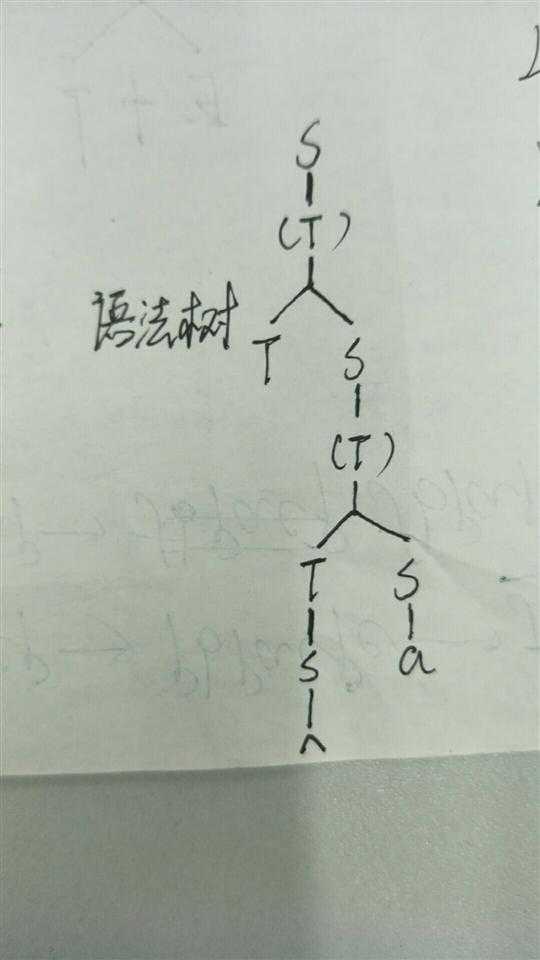 S
(T)
语法树
T S
(T)
T S
S a
^